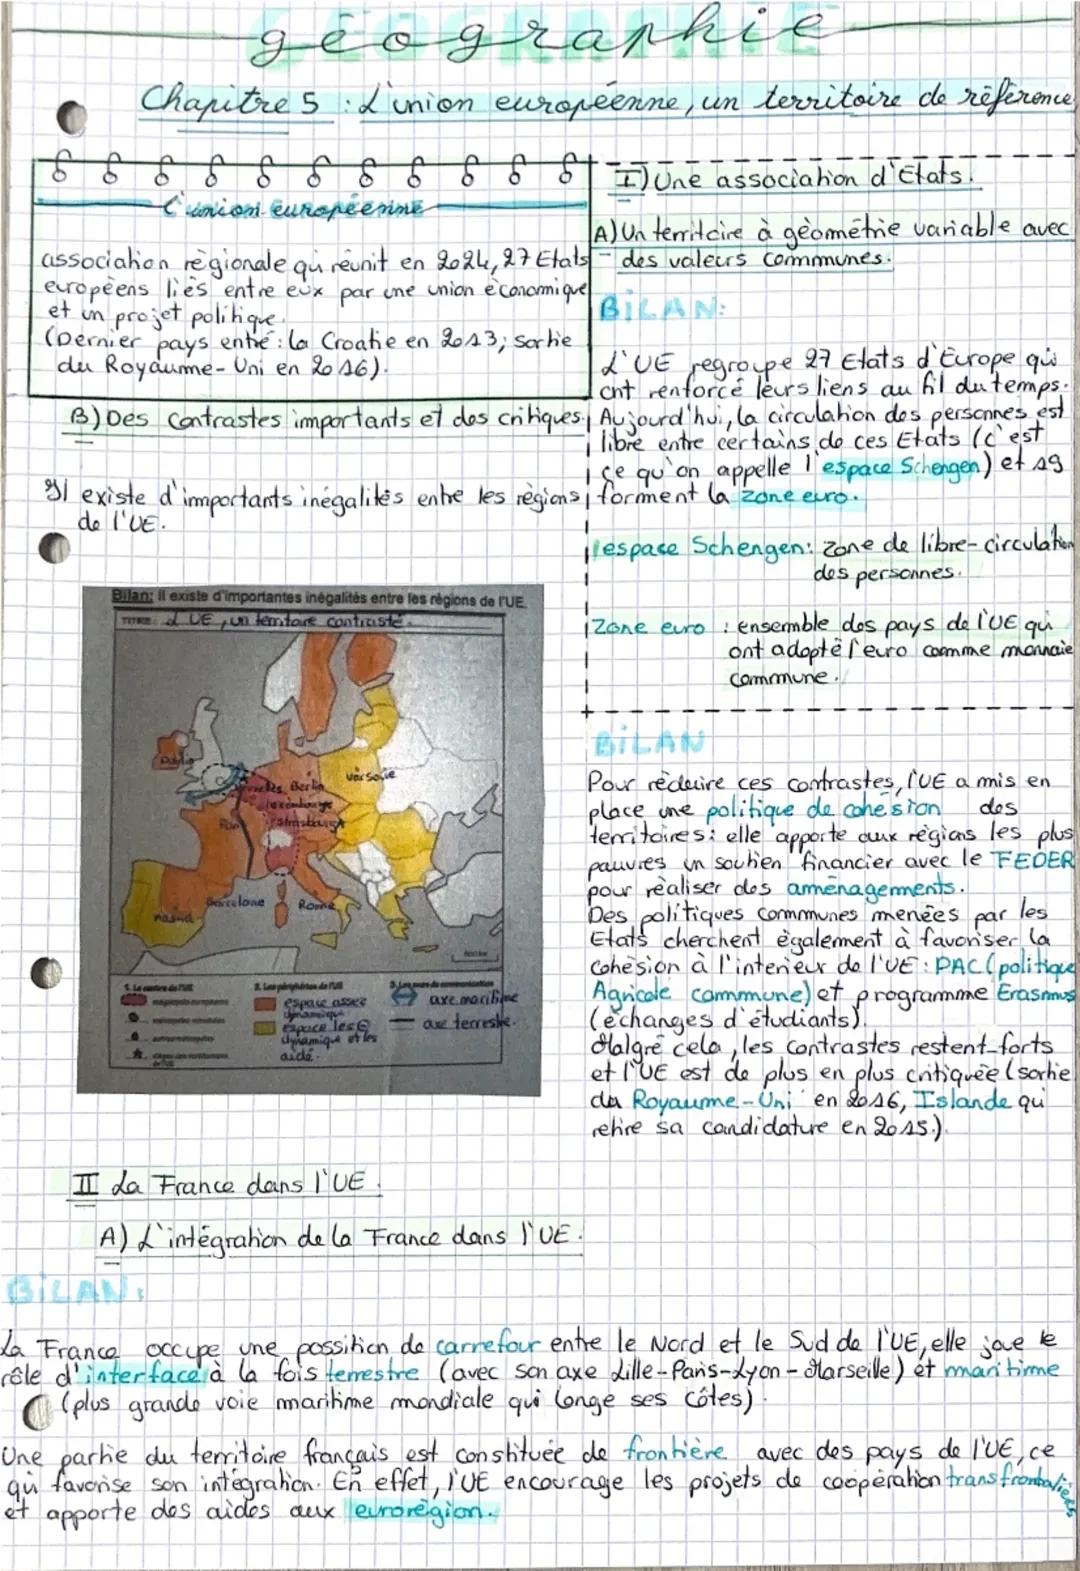 géographie
Chapitre 5 : L'union européenne, un territoire de référence
L'union européenne
association règionale qui réunit en 2024, 27 Etats
européens liés entre eux par une union économique
et un projet politique.
(Dernier pays entré : la Croatie en 2013; sortie
du Royaume-Uni en 2016).
I) Une association d'Etats.
A) Un territoire à gèométrie variable avec
des valeurs communes.
BILAN:
L'UE regroupe 27 Etats d'Europe qui
ont renforcé leurs liens au fil du temps.
Aujourd'hui, la circulation des personnes est
libre entre certains de ces Etats (c'est
ce qu'on appelle l'espace Schengen) et 19
forment la zone euro.
espace Schengen: zone de libre-circulation
des personnes.
Zone euro : ensemble des pays de l'UE qui
ont adopté l'euro comme monnaie
commune.
B) Des contrastes importants et des critiques.
Il existe d'importants inégalités entre les règions
de l'UE.
Bilan: Il existe d'importantes inégalités entre les régions de l'UE.
TITRE: L'UE, un territoire contrasté.
Dublin
Berlin
Varsovie
Luxembourg
Strasbourg
Paris
Barcelone
Rome
Madrid
1. Le centre de l'UE
mégalopole européenne
autres métropoles
2. Les périphéries de l'UE
espace assez
dynamique
espace les
dynamique et les
aidé.
3. Les axes de communication
axe maritime
axe terrestre.
BILAN
Pour rèduire ces contrastes, l'UE a mis en
place une politique de cohésion des
territoires: elle apporte aux régions les plus
pauvres un soutien financier avec le FEDER
pour rèaliser des aménagements.
Des politiques communes menées par les
Etats cherchent ègalement à favoriser la
cohèsion à l'interieur de l'UE : PAC (politique
Agricole commune) et programme Erasmus
(èchanges d'étudiants).
Malgré cela, les contrastes restent forts
et l'UE est de plus en plus critiquée (sortie
du Royaume-Uni en 2016, Islande qui
retire sa candidature en 2015.).
II La France dans l'UE.
A) L'intégration de la France dans l'UE.
BILAN:
La France occupe une possition de carrefour entre le Nord et le Sud de l'UE, elle joue le
rôle d'interface à la fois terrestre (avec son axe Lille-Paris-Lyon-Marseille) et maritime
(plus grande voie maritime mondiale qui longe ses Côtes).
Une partie du territoire français est constituée de frontière avec des pays de l'UE, ce
qui favorise son intégration. En effet, l'UE encourage les projets de coopération transfrontaliers
et apporte des aides aux eurorégion.